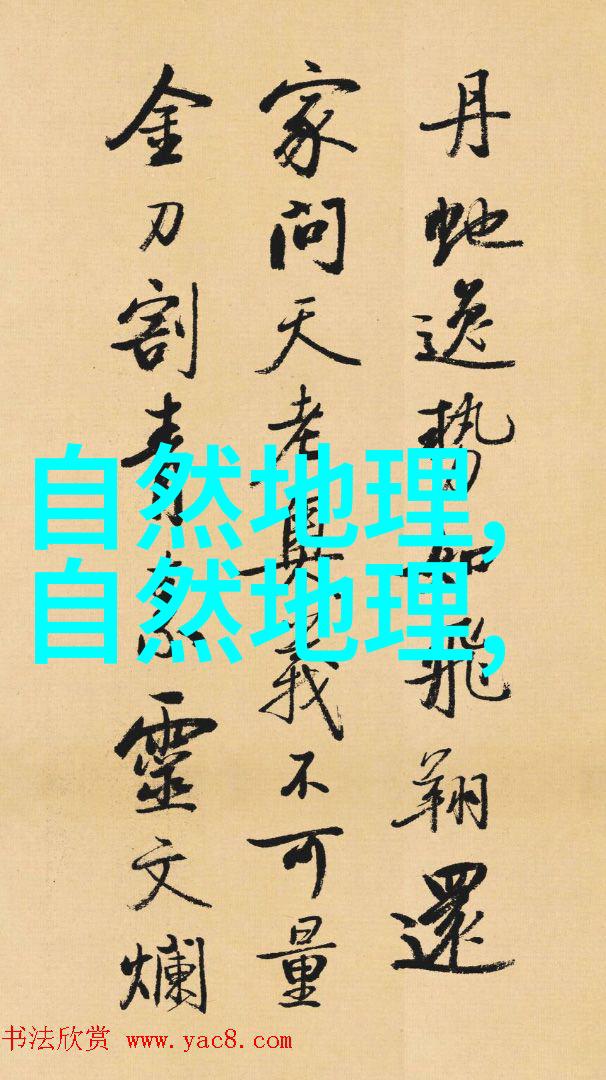 丹虵逸勢如飛翔還
家問天老奥義不可量
金刀割青素靈文爛
自然地理,
自然地理,
书法欣赏 www.yac8.com